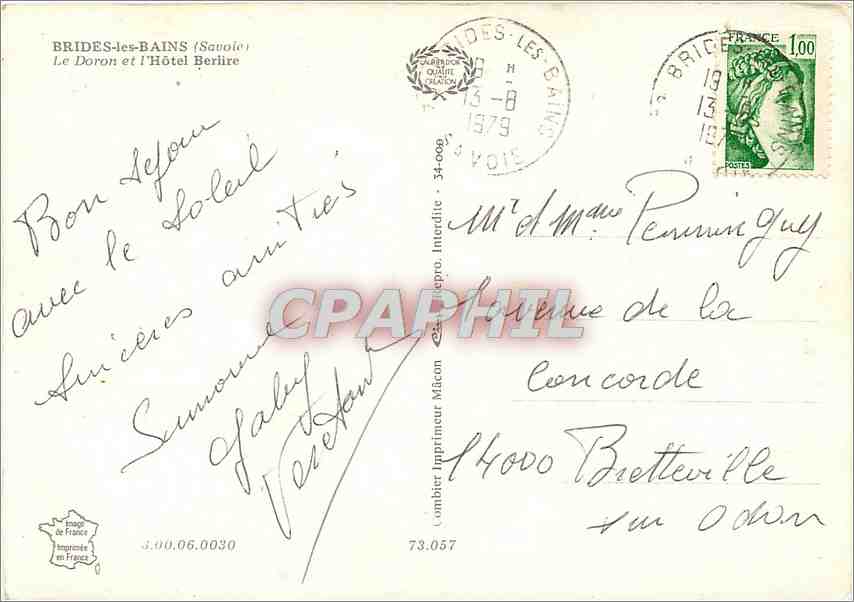 BRIDES-les-BAINS (Savoie)
Le Doron et l'Hôtel Berlire
LABEL D'OR
QUALITÉ
CRÉATION
BRIDES-LES-BAINS
13-8
1979
SAVOIE
BRIDES
13
FRANCE 1,00
POSTES
Bon séjour
avec le soleil
Sincères amitiés
Simone
Gaby
Mr et Mme
avenue de la
Concorde
14000 Bretteville
sur Odon
CPAPHIL
Combier Imprimeur Mâcon Repro. Interdite - 34-009
Image
de France
Imprimée
en France
3.00.06.0030
73.057